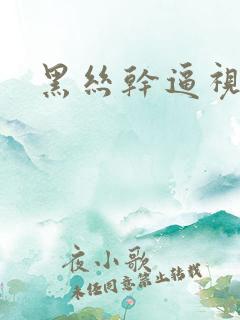 黑絲幹逼視
夜小歌
未经同意禁止转载